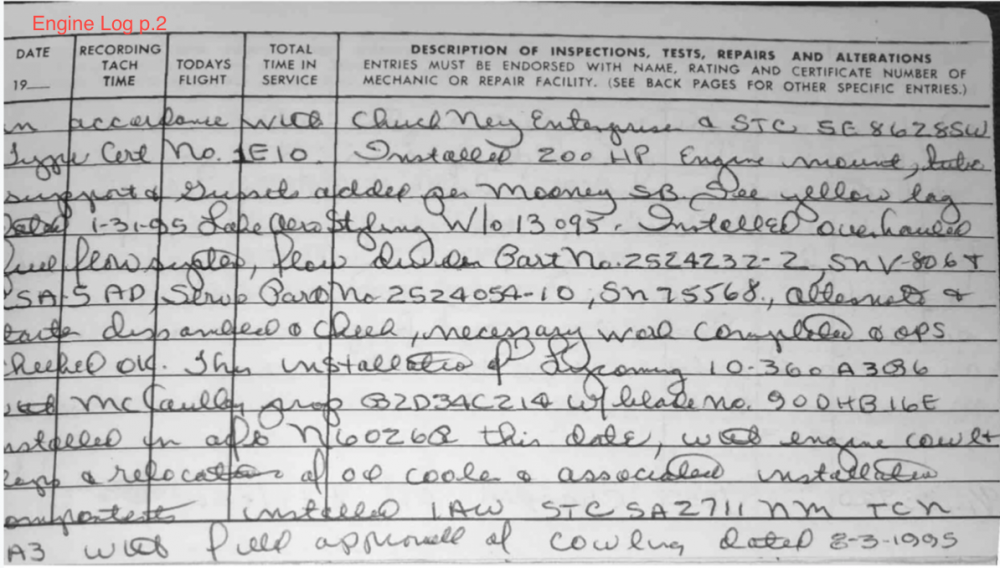 Engine Log p.2
DATE
19__
RECORDING
TACH
TIME
TODAYS
FLIGHT
TOTAL
TIME IN
SERVICE
DESCRIPTION OF INSPECTIONS, TESTS, REPAIRS AND ALTERATIONS
ENTRIES MUST BE ENDORSED WITH NAME, RATING AND CERTIFICATE NUMBER OF
MECHANIC OR REPAIR FACILITY. (SEE BACK PAGES FOR OTHER SPECIFIC ENTRIES.)
in accordance with Chuck Ney Enterprise & STC SE8628SW
Type Cert No. 1E10. Installed 200 HP Engine mount, tube
support & Gussets added per Mooney SB. See yellow tag
dated 1-31-95 Lake Aero Styling W/o 13095. Installed overhauled
fuel flow system, flow divider Part No. 2524232-2, SN V-806
RSA-5 AD, Servo Part No 2524054-10, SN 75568., alternator &
starter & check, necessary work completed & ops
checked OK. This installation of Lycoming IO-360 A3B6
with McCaulley prop B2D34C214 w/ blade No. 90DHB.16E
installed in N6026Q this date, with engine cowl
& relocation of oil cooler & associated installation
components installed IAW STC SA2711NM TCN
A3 with field approval of cowling dated 8-3-1995